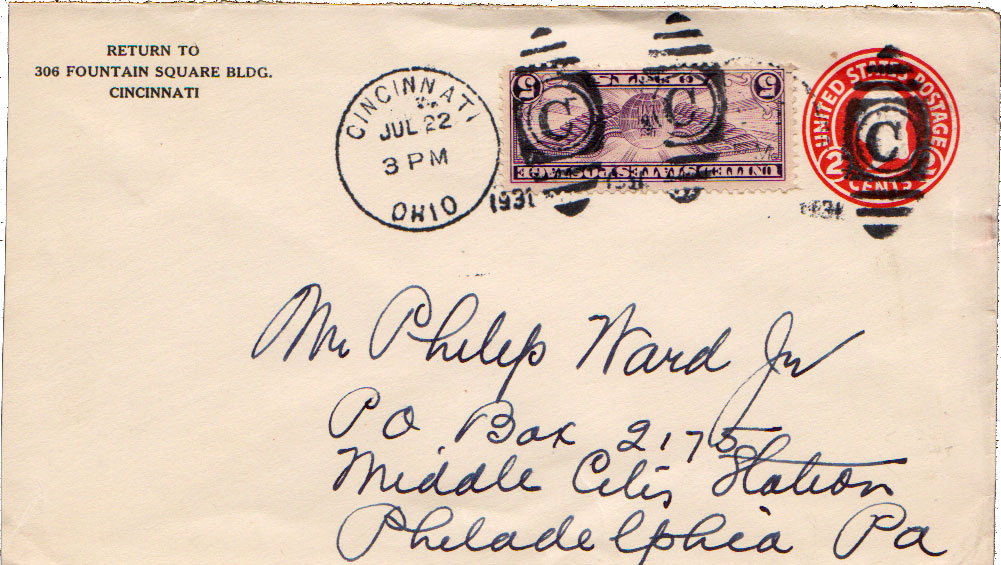 RETURN TO
306 FOUNTAIN SQUARE BLDG.
CINCINNATI
CINCINNATI
JUL 22
3 PM
OHIO
1931
5 5
UNITED STATES POSTAGE
C C
1931
UNITED STATES POSTAGE
2 CENTS 2
C
1931
Mr Philip Ward Jr
PO Box 2175
Middle City Station
Philadelphia Pa